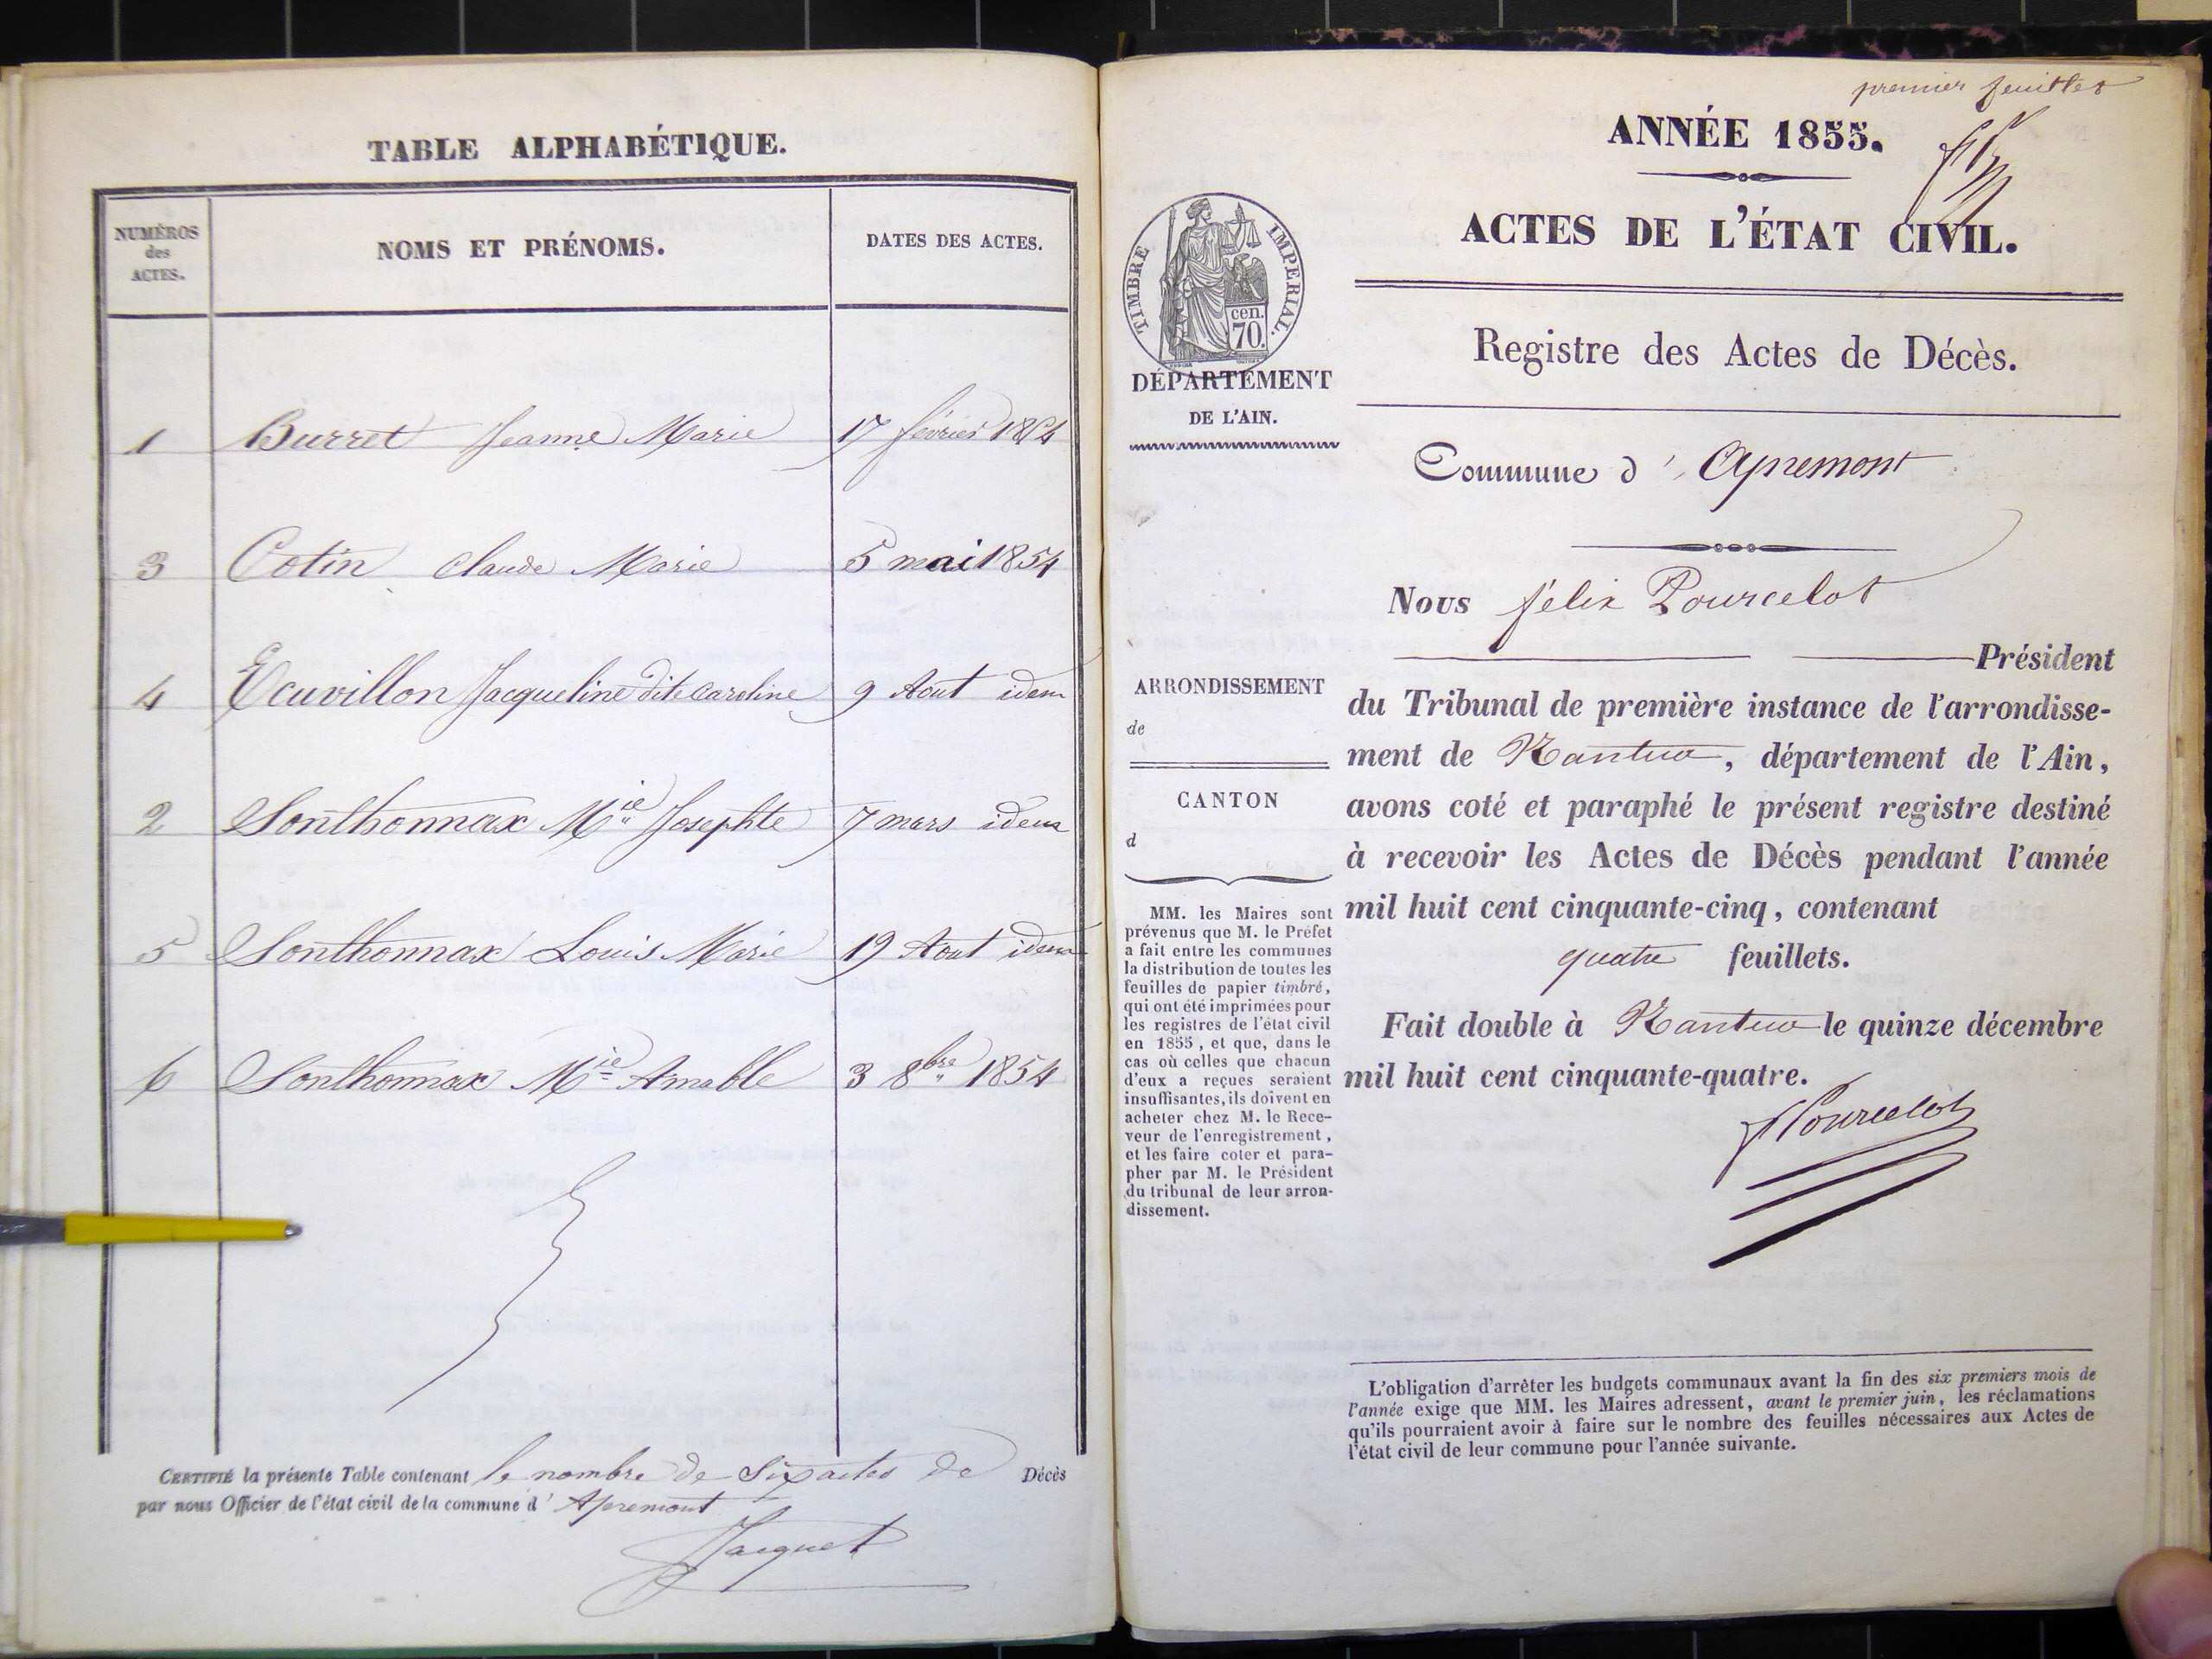 TABLE ALPHABÉTIQUE.
NUMÉROS
des
ACTES.
NOMS ET PRÉNOMS.
DATES DES ACTES.
1 Burret Jeanne Marie 17 février 1854
3 Cotin Claude Marie 5 mai 1854
4 Ecuvillon Jacqueline dite Caroline 9 Aout idem
2 Sonthonnax Mie Josephte 7 mars idem
5 Sonthonnax Louis Marie 19 Aout idem
6 Sonthonnax Mie Amable 3 8bre 1854
CERTIFIÉ la présente Table contenant le nombre de Six actes de Décès
par nous Officier de l'état civil de la commune d' Apremont
Jacquet
premier feuillet
ANNÉE 1855.
ACTES DE L'ÉTAT CIVIL.
TIMBRE IMPERIAL.
cen.
70.
DÉPARTEMENT
DE L'AIN.
Registre des Actes de Décès.
Commune d' Apremont
Nous félix Pourcelot
Président
du Tribunal de première instance de l'arrondisse-
ment de Nantua, département de l'Ain,
avons coté et paraphé le présent registre destiné
à recevoir les Actes de Décès pendant l'année
mil huit cent cinquante-cinq, contenant
quatre feuillets.
Fait double à Nantua le quinze décembre
mil huit cent cinquante-quatre.
fPourcelot
ARRONDISSEMENT
de
CANTON
d
MM. les Maires sont
prévenus que M. le Préfet
a fait entre les communes
la distribution de toutes les
feuilles de papier timbré,
qui ont été imprimées pour
les registres de l'état civil
en 1855, et que, dans le
cas où celles que chacun
d'eux a reçues seraient
insuffisantes, ils doivent en
acheter chez M. le Rece-
veur de l'enregistrement,
et les faire coter et para-
pher par M. le Président
du tribunal de leur arron-
dissement.
L'obligation d'arrêter les budgets communaux avant la fin des six premiers mois de
l'année exige que MM. les Maires adressent, avant le premier juin, les réclamations
qu'ils pourraient avoir à faire sur le nombre des feuilles nécessaires aux Actes de
l'état civil de leur commune pour l'année suivante.